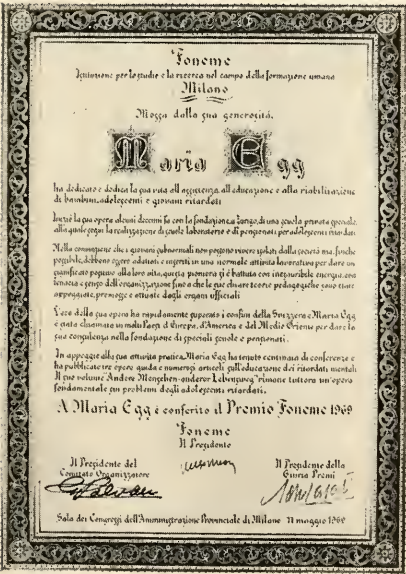 Foneme
Istituzione per lo studio e la ricerca nel campo della formazione umana
Milano
Mossa dalla sua generosità,
Maria Egg
ha dedicato e dedica la sua vita all'assistenza, all'educazione e alla riabilitazione
di bambini, adolescenti e giovani ritardati
Iniziò la sua opera alcuni decenni fa con la fondazione, a Zurigo, di una scuola privata speciale,
alla quale seguì la realizzazione di scuole laboratorio e di pensionati per adolescenti ritardati
Nella convinzione che i giovani subnormali non possono vivere isolati dalla società ma, finché
possibile, debbono essere adattati e inseriti in una normale attività lavorativa per dare un
significato positivo alla loro vita, questa pioniera si è battuta con inesauribile energia, con
tenacia e senso dell'organizzazione fino a che le sue chiare teorie pedagogiche sono state
appoggiate, promosse e attuate dagli organi ufficiali
L'eco della sua opera ha rapidamente superato i confini della Svizzera e Maria Egg
è stata chiamata in molti Paesi d'Europa, d'America e del Medio Oriente per dare la
sua consulenza nella fondazione di speciali scuole e pensionati.
In appoggio alla sua attività pratica, Maria Egg ha tenuto centinaia di conferenze e
ha pubblicato tre opere guida e numerosi articoli sull'educazione dei ritardati mentali
Il suo volume "Andere Menschen anderer Lebensweg" rimane tuttora un'opera
fondamentale sui problemi degli adolescenti ritardati.
A Maria Egg è conferito il Premio Foneme 1969
Foneme
Il Presidente
Il Presidente del
Comitato Organizzatore
Il Presidente della
Giuria Premi
Sala dei Congressi dell'Amministrazione Provinciale di Milano 11 maggio 1969